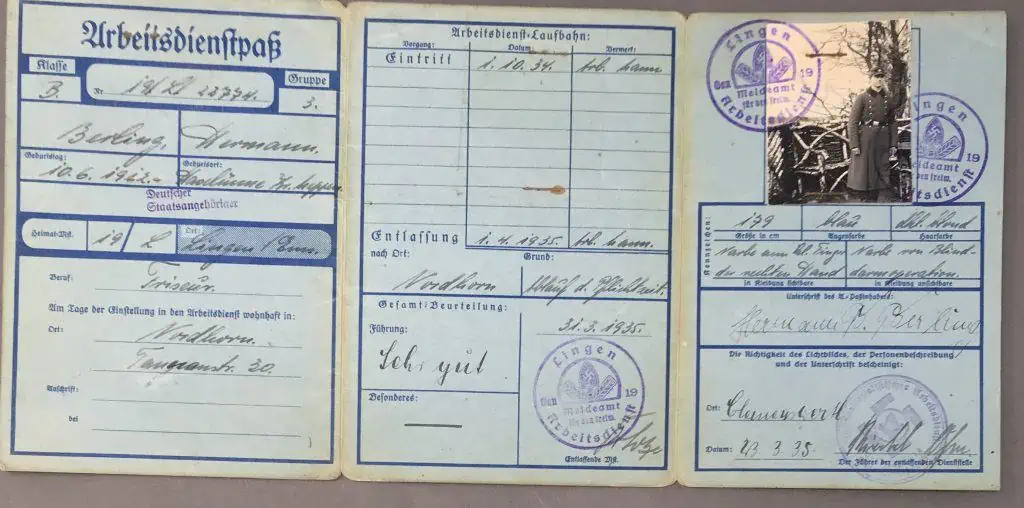 Arbeitsdienstpaß
Klasse
B
Nr. 19/L 22774.
Gruppe
3.
Berling, Hermann.
Geburtstag:
Geburtsort:
10.6.
Deutscher
Staatsangehöriger
Heimat-Mst.
19 / L
Ort:
Lingen / Ems.
Beruf:
Friseur.
Am Tage der Einstellung in den Arbeitsdienst wohnhaft in:
Ort:
Nordhorn.
20.
Anschrift:
bei
Arbeitsdienst-Laufbahn:
Vorgang: Datum Vermerk:
Eintritt 1.10.34. Arb. Mann
Entlassung 1.4.1935. Arb. Mann.
nach Ort: Grund:
Nordhorn Ablauf d. Pflichtzeit.
Gesamt-Beurteilung:
Führung:
31.3.1935.
Sehr gut
Besonderes:
Lingen
Gau 19
Meldeamt
für den freiw.
Arbeitsdienst
Entlassende Mst.
Lingen
Gau 19
Meldeamt
für den freiw.
Arbeitsdienst
Lingen
19
Meldeamt
den freiw.
Arbeitsdienst
Kennzeichen:
179 blau dkl. blond
Größe in cm Augenfarbe Haarfarbe
Narbe am kl. Finger Narbe von Blind-
der rechten Hand darmoperation.
in Kleidung sichtbare in Kleidung unsichtbare
Unterschrift des A.-Paßinhabers:
Hermann Berling
Die Richtigkeit des Lichtbildes, der Personenbeschreibung
und der Unterschrift bescheinigt:
Ort:
Datum: 23.3.35.
Der Führer der entlassenden Dienststelle